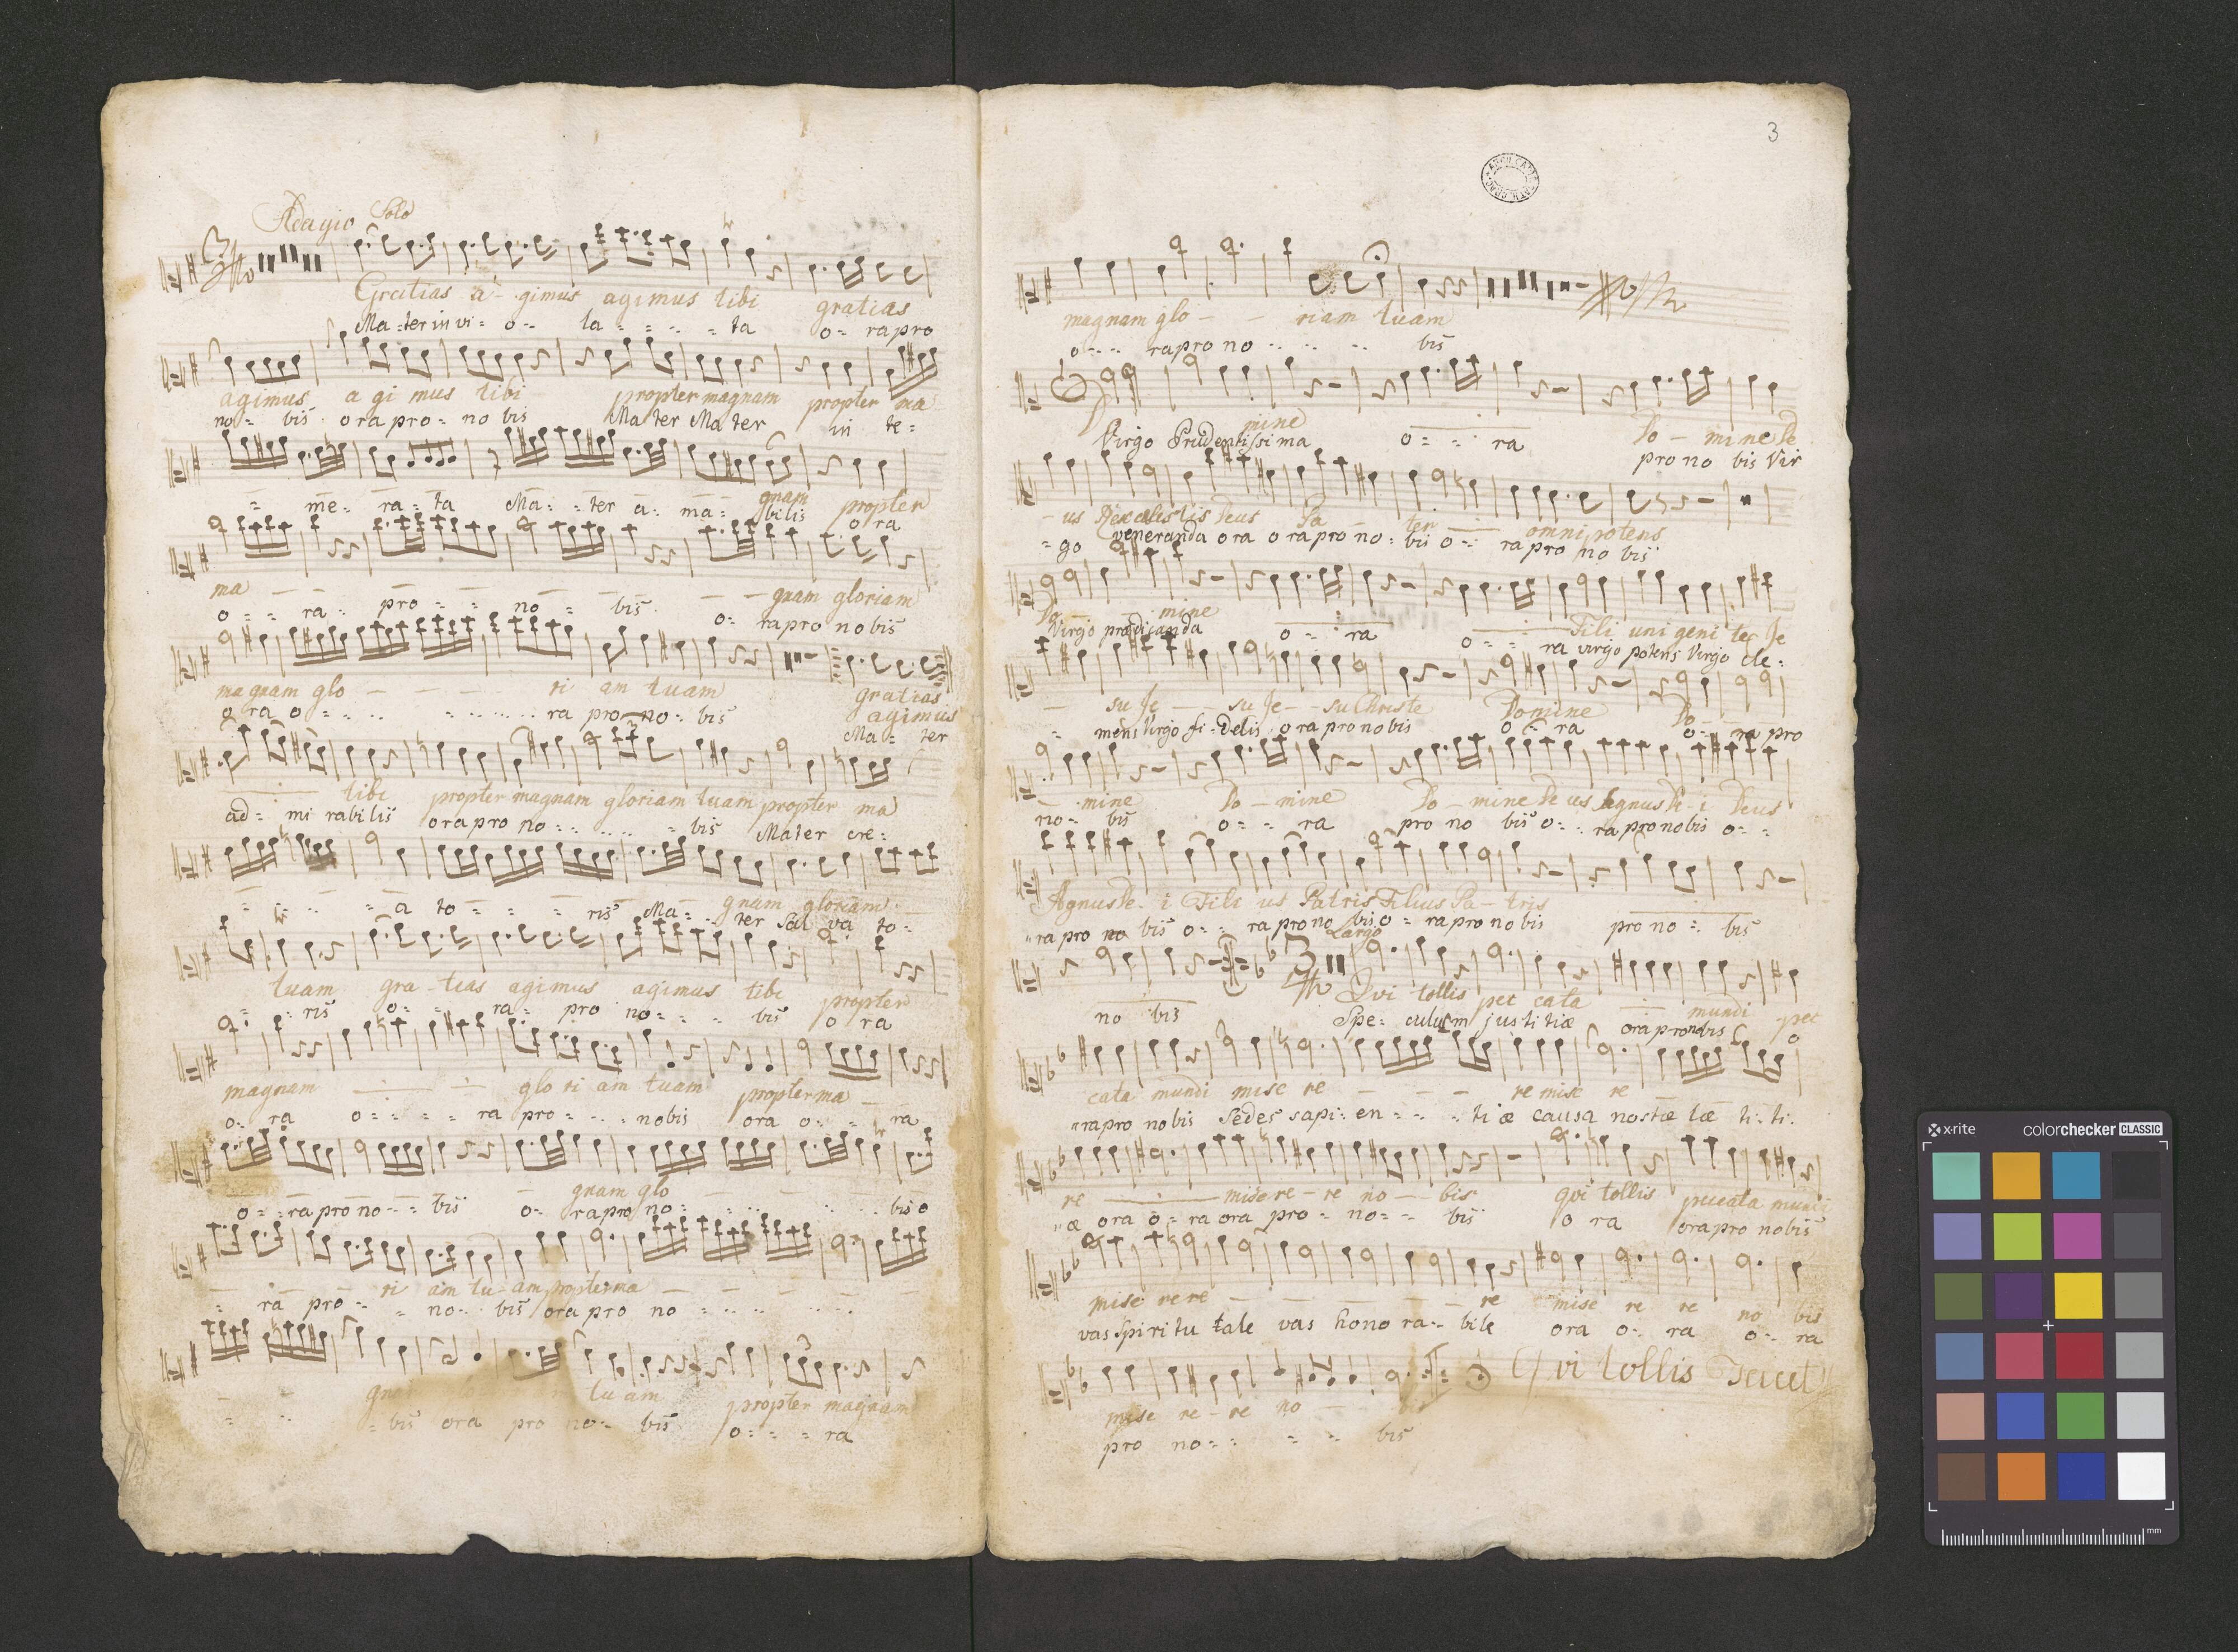 Adagio Solo
Gratias a - gimus agimus tibi gratias
Ma=ter in vi= o-- la = = = ta o= ra pro
agimus agi mus tibi propter magnam propter ma
no= bis ora pro= no bis Mater Mater in te=
gnam propter
= me= ra= ta Ma= = ter a= ma= bilis o ra
ma — — — — — gnam gloriam
o= = ra= pro= = no = bis o= ra pro nobis
magnam glo - - - ri am tuam gratias
o ra o= = ra pro no= bis agimus
Ma= ter
tibi propter magnam gloriam tuam propter ma
ad= mi rabilis ora pro no= = bis Mater cre=
gnam gloriam
= a to= = = ris Ma= ter Sal va to=
tuam gra - tias agimus agimus tibi propter
= = ris o= = ra= pro no= = = bis o ra
magnam glo ri am tuam propter ma —
o= ra o= = = = ra pro= = nobis ora o= = ra
gnam glo
o= = ra pro no= = bis o= ra pro no= bis o
ri am tu-am propter ma
= ra pro= = no= bis ora pro no = =
tu am propter magnam
= bis ora pro no= bis o= = = ra
3
magnam glo - - riam tuam
o= = ra pro no = = bis
mine Do - mine De
Virgo Prudentissima o= = ra pro no bis Vir
- us Rex cælestis Deus Pa - ter omnipotens
= go veneranda ora ora pro no= bis o= ra pro no bis
Do - mine Fili uni geni te Je
Virgo prædicanda o= ra o= = ra virgo potens Virgo cle=
- su Je - su Je - su Christe Domine Do
= mens Virgo fi=delis ora pro nobis o= ra o= ra pro
mine Do - mine Do - mine De us Agnus De - i Deus
no= bis o= = ra pro no bis o= ra pro nobis o= =
Agnus De - i Fili us Patris Filius Pa - tris
=ra pro no bis o= = ra pro no bis o= ra pro no bis pro no= bis
Largo
Qvi tollis pec cata mundi pec
no bis Spe= culum justitiæ ora pro nobis o
cata mundi mise re - - - re mise re
=ra pro nobis Sedes sapi= en= = = ti æ causa nostæ læ ti= ti=
re miserere - re no - - bis qvi tollis peccata mundi
=æ ora o= ra ora pro= no= = bis o ra ora pro nobis
mise rere - - - - - re mise re re no bis
vas Spiritu tale vas hono ra= bile ora o= ra o= ra
Qvi tollis Tacet
mise re - re no
pro no= = = = bis
x-rite colorchecker CLASSIC
mm